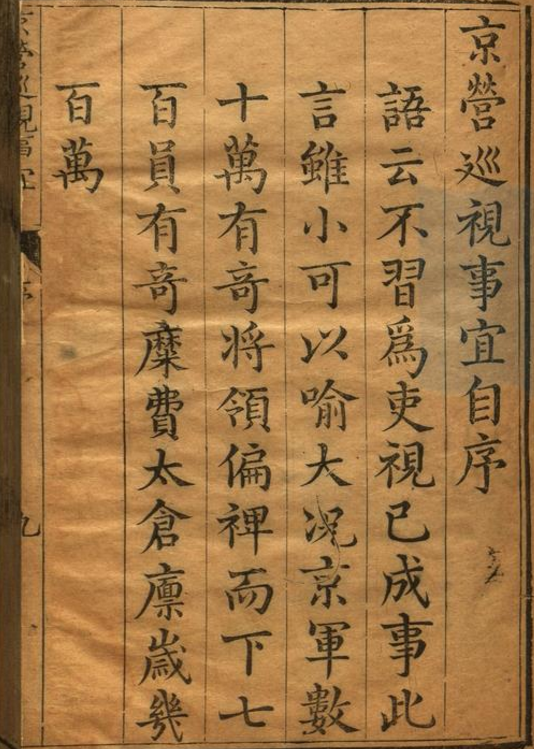 京營巡視事宜自序
語云不習爲吏視已成事此
言雖小可以喻大况京軍數
十萬有竒将領偏裨而下七
百員有竒糜費太倉廪歲幾
百萬
京營巡視事宜
序
九